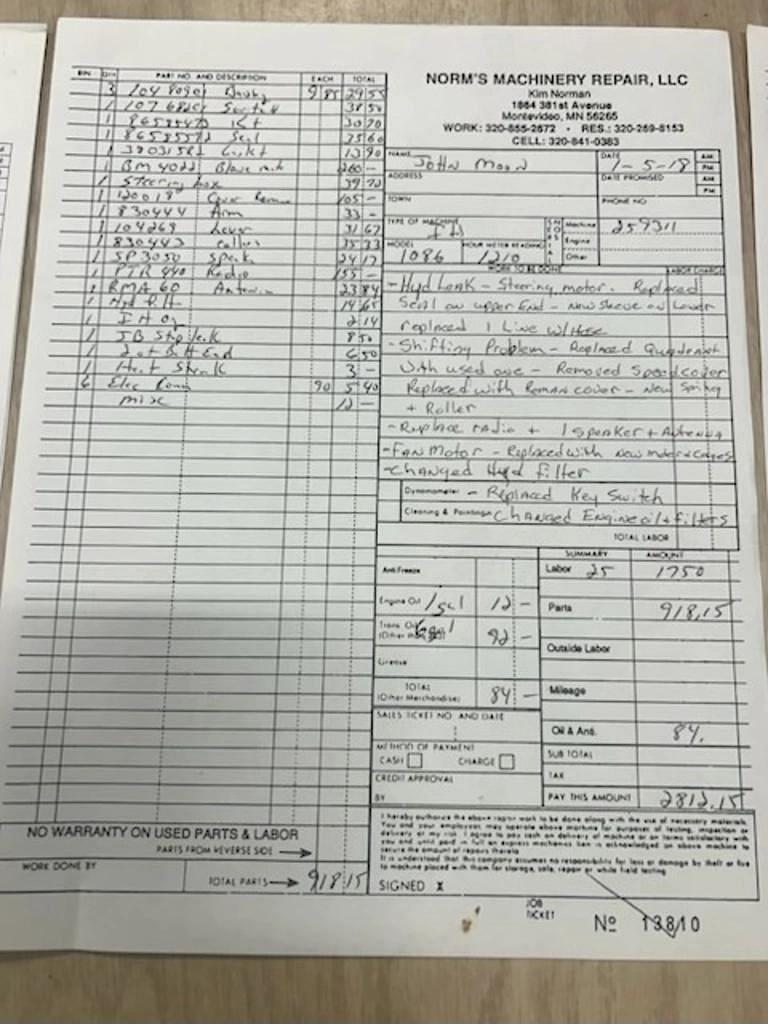 BIN QTY PART NO. AND DESCRIPTION EACH TOTAL
3 104 8090 9 85 29 55
1 107 Switch 38 50
1 Kit 30 70
1 Seal 25 60
1 13 90
1 BM 4022 Blower mtr 260 -
1 Steering box 39 72
1 Cover Reman 105 -
1 830444 Arm 33 -
1 104269 Lever 31 67
1 830443 35 33
1 SP 3050 Speak 24 17
1 PTR 440 Radio 155 -
1 RMA 60 Antenna 23 84
1 Hyd filt 14 65
1 IH Oil 2 14
1 JB 8 50
1 Batt End 6 50
1 Heat Shrink 3 -
6 Elec Conn 90 5 40
misc 12 -
NO WARRANTY ON USED PARTS & LABOR
PARTS FROM REVERSE SIDE
WORK DONE BY
TOTAL PARTS 918 15
NORM'S MACHINERY REPAIR, LLC
Kim Norman
1864 381st Avenue
Montevideo, MN 56265
WORK: 320-855-2672 • RES.: 320-269-8153
CELL: 320-841-0383
NAME John Moon DATE 1-5-18 AM PM
ADDRESS DATE PROMISED AM PM
TOWN PHONE NO.
TYPE OF MACHINE SERIAL NOS Machine 259311
Engine
MODEL 1086 HOUR METER READING 1210 Other
WORK TO BE DONE LABOR CHARGE
- Hyd Leak - Steering motor. Replaced
Seal on upper End - New Sleeve on Lower
replaced 1 Line w/Hose
- Shifting Problem - Replaced Quadrant
with used one - Removed Speed cover
Replaced with Reman cover - New Spring
+ Roller
- Replace radio + 1 speaker + Antenna
- Fan Motor - Replaced with New motor + cages
- Changed Hyd filter
Dynamometer - Replaced Key Switch
Cleaning & Painting Changed Engine oil + filters
TOTAL LABOR
Anti Freeze
Engine Oil 1 gal 12 -
Trans. Oil
(Other gal
Grease
TOTAL
(Other Merchandise) 84 -
SALES TICKET NO. AND DATE
METHOD OF PAYMENT
CASH CHARGE
CREDIT APPROVAL
BY
SUMMARY AMOUNT
Labor 25 1750
Parts 918.15
Outside Labor
Mileage
Oil & Anti. 84.
SUB TOTAL
TAX
PAY THIS AMOUNT 2812.15
I hereby authorize the above repair work to be done along with the use of necessary materials.
You and your employees may operate above machine for purposes of testing, inspection or
delivery at my risk. I agree to pay cash on delivery of machine or on terms satisfactory with
you and until paid in full an express mechanics lien is acknowledged on above machine to
secure the amount of repairs thereto.
It is understood that this company assumes no responsibility for loss or damage by theft or fire
to machine placed with them for storage, sale, repair or while field testing
SIGNED X
JOB
TICKET No 13810